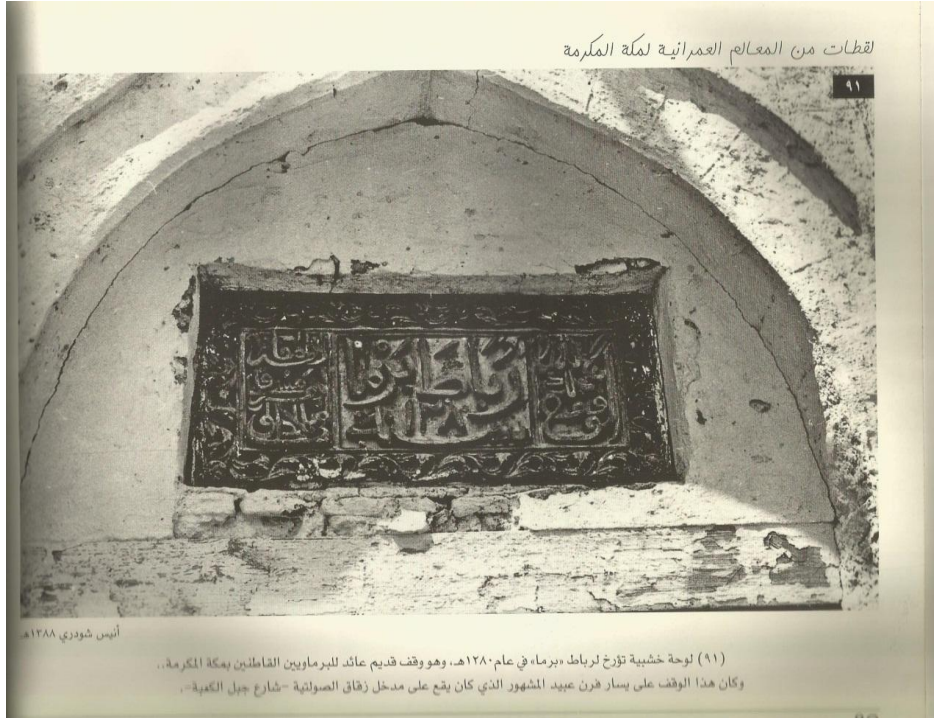 لقطات من المعالم العمرانية لمكة المكرمة
٩١
رباط برما
سنة
أنيس شودري ١٣٨٨هـ
(٩١) لوحة خشبية تؤرخ لرباط «برما» في عام ١٢٨٠هـ، وهو وقف قديم عائد للبرماويين القاطنين بمكة المكرمة..
وكان هذا الوقف على يسار فرن عبيد المشهور الذي كان يقع على مدخل زقاق الصولتية -شارع جبل الكعبة-.